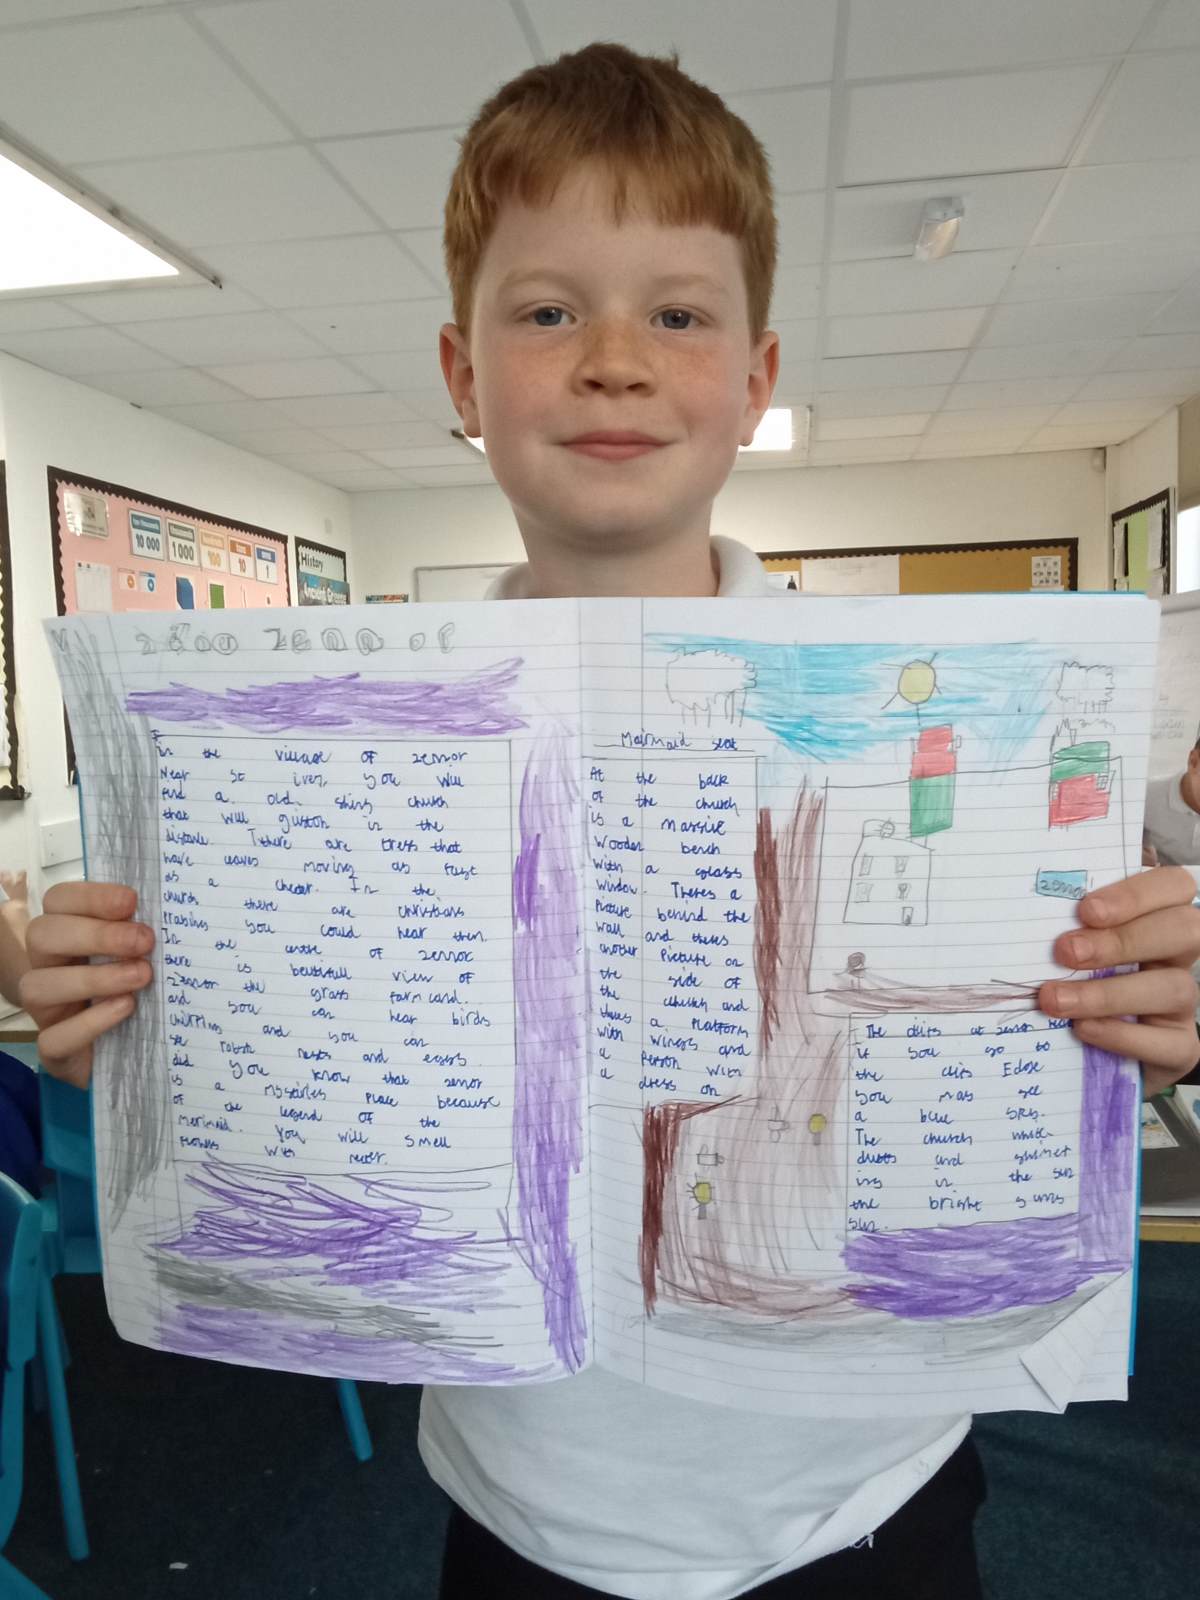 10 000
1 000
100
10
1
History
Ancient Greece
in the village of zennor
Near St ives, you will
find a old shiny church
that will gliston in the
distance. There are tress that
have leaves moving as fast
as a cheater. In the
church there are christians
Praising you could hear them.
In the centre of zennor
there is beutifull view of
zennor the grass farm land.
and you can hear birds
chirping and you can
se robin nests and eggs.
did you know that zenor
is a mystirles Place because
of the legend of the
mermaid. You will smell
flowers with
Marmaid seat
At the back
of the church
is a massive
wooden bench
with a glass
window. Theres a
Picture behind the
wall and theres
another Picture on
the side of
the church and
theres a Platform
with wings and
a Person with
a dress on
zennor
The cliffs at zennor
if you go to
the cliffs Edge
you may see
a blue sky.
The church
and
ing in the sun
the bright sunny
sun.